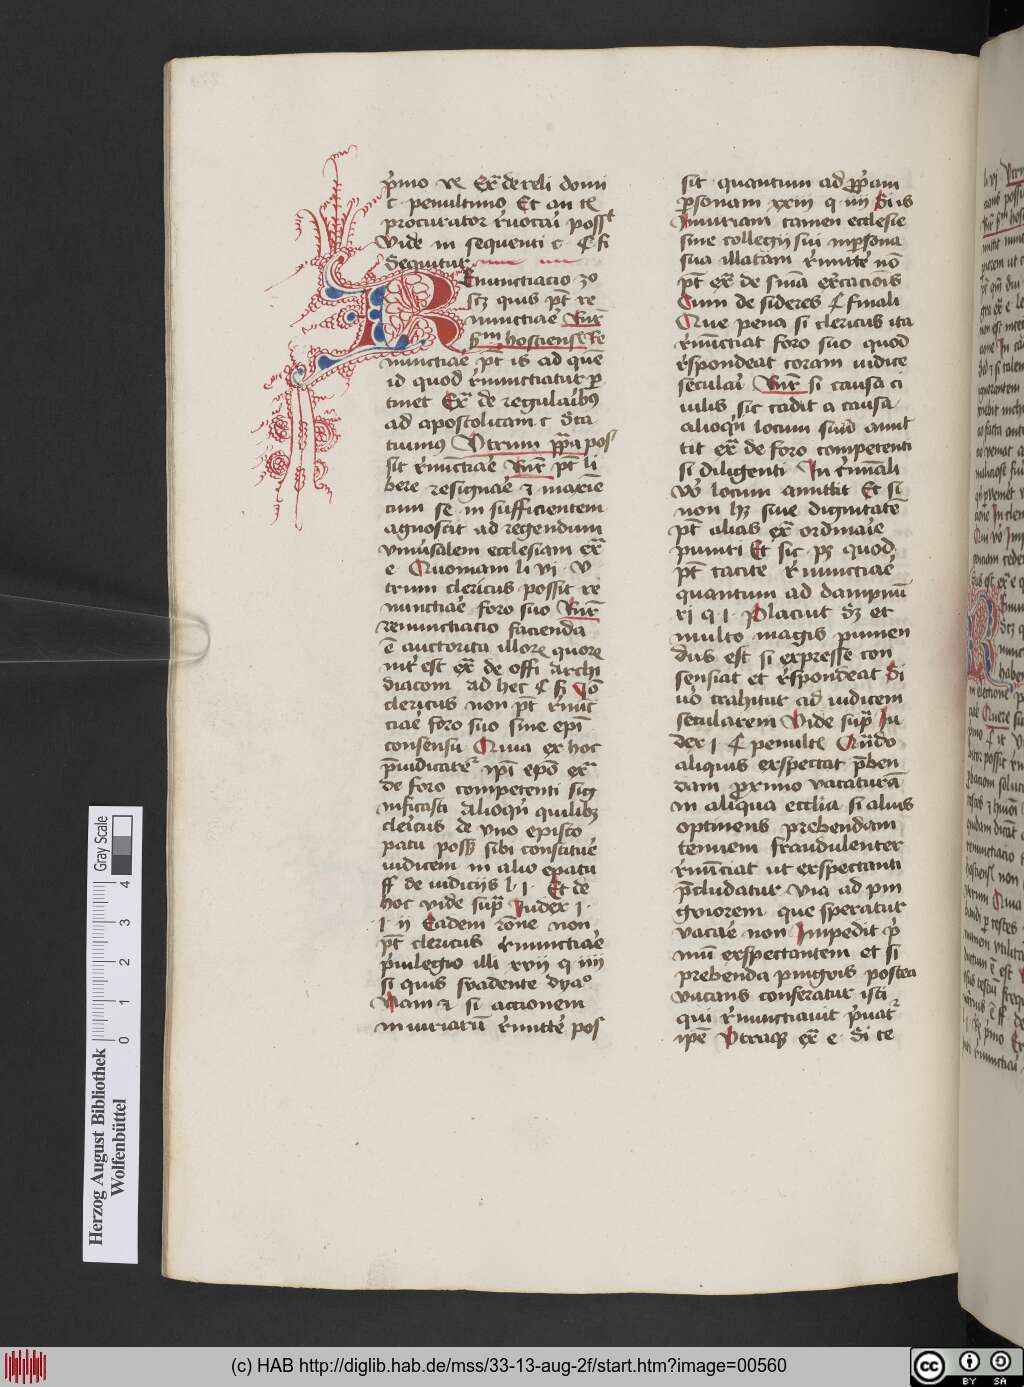 p̄mo vl̄ Ex̄ de reli domi
c· penultimo Et an tl̄
procurator r̄uocai posst
vide in sequenti c· ¶ fi
Sequitur
Enunctiacio 2o
Scz quis pt̄ re
nunctiare Rn̄r
Scd̄m hostiensē Re
nunctiare pt̄ is ad quē
id quod r̄nunctiatur p̱
tinet Ex̄ de regularibus
ad apostolicam c Dicta
tiuimus Vtrum papa pos
sit r̄nūctiare Rn̄r pt̄ li
bere resignare et maxie
cum se in sufficientem
agnoscit ad regendum
vniūsalem ecclesiam ex̄
e· Quoniam li vi · V
trum clericus possit re
nunctiare foro suo Rn̄r
renunctiacio facienda
ē auctorita illoꝝ quoꝝ
int̄ est ex̄ de offi archi
diacom ad hec ¶ fi Vn̄
clericus non pt̄ r̄nūc
ciare foro suo sine epī
consensu Quia ex hoc
p̄iudicatur ipī epō ex̄
de foro competenti sig
nificasti alioqn̄ quilibꝫ
clericus de vno episco
patu possꝫ sibi constituē
iudicem in alio epatu
ff de iudicijs l· 1 · Et de
hoc vide sup̄ Iudex 1 ·
1 · ii Eadem rōne non
pt̄ clericus r̄nunctiare
p̄uilegio illi xvii q iiii
si quis suadente dyao
Nam et si actionem
iniuriarū r̄mittē pos
sit quantum ad pp̄am
p̱sonam xxiii q iiii Si is
Iniuriam tamen ecclesie
sine collegij sui inp̱sona
sua illatam r̄mittē nō
pt̄ ex̄ de snīa ex̄cacōis
Cum de sideres ¶ finali
Que pena si clericus ita
r̄nūctiat foro suo quod
r̄spondeat coram iudice
seculari Rn̄r si causa ci
uilis sic cadit a causa
alioqn̄ locum suū amit
tit ex̄ de foro competenti
si diligenti In c̄minali
vō locum amittit Et si
non hꝫ sine dignitate
pt̄ alias ex̄ ordinarie
puniri Et sic pꝫ quod
pt̄ tacite r̄nunctiare
quantum ad dampnū
xi q 1 · Placuit Sꝫ et
multo magis punien
dus est si expresse con
sensiat et r̄spondeat Si
vō trahitur ad iudicem
secularem Vide sup̄ Iu
dex 1 ¶ penultē Qn̄do
aliquis exspectat p̄ben
dam proximo vacaturā
in aliqua ecclia si alius
optinens prebendam
tenuem fraudulenter
r̄nūctiat ut exspectanti
p̄cludatur via ad pin
gviorem que speratur
vacare non Impedit p̄
mū exspectantem et si
prebenda pingvis postea
vacans conferatur isti
qui r̄nunctiauit p̄uat
ipē Vtraqꝫ ex̄ e· Si te
Herzog August Bibliothek
Wolfenbüttel
0 1 2 3 4
Gray Scale
(c) HAB http://diglib.hab.de/mss/33-13-aug-2f/start.htm?image=00560
cc BY SA